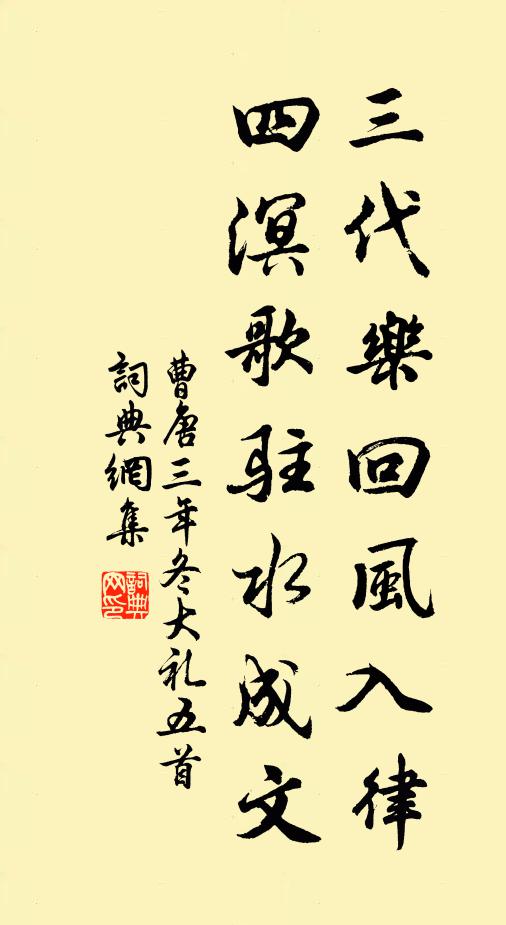 三代樂回風入律
四溟歌駐水成文
曹唐三年冬大礼五首
詞典網集
詞典
网印